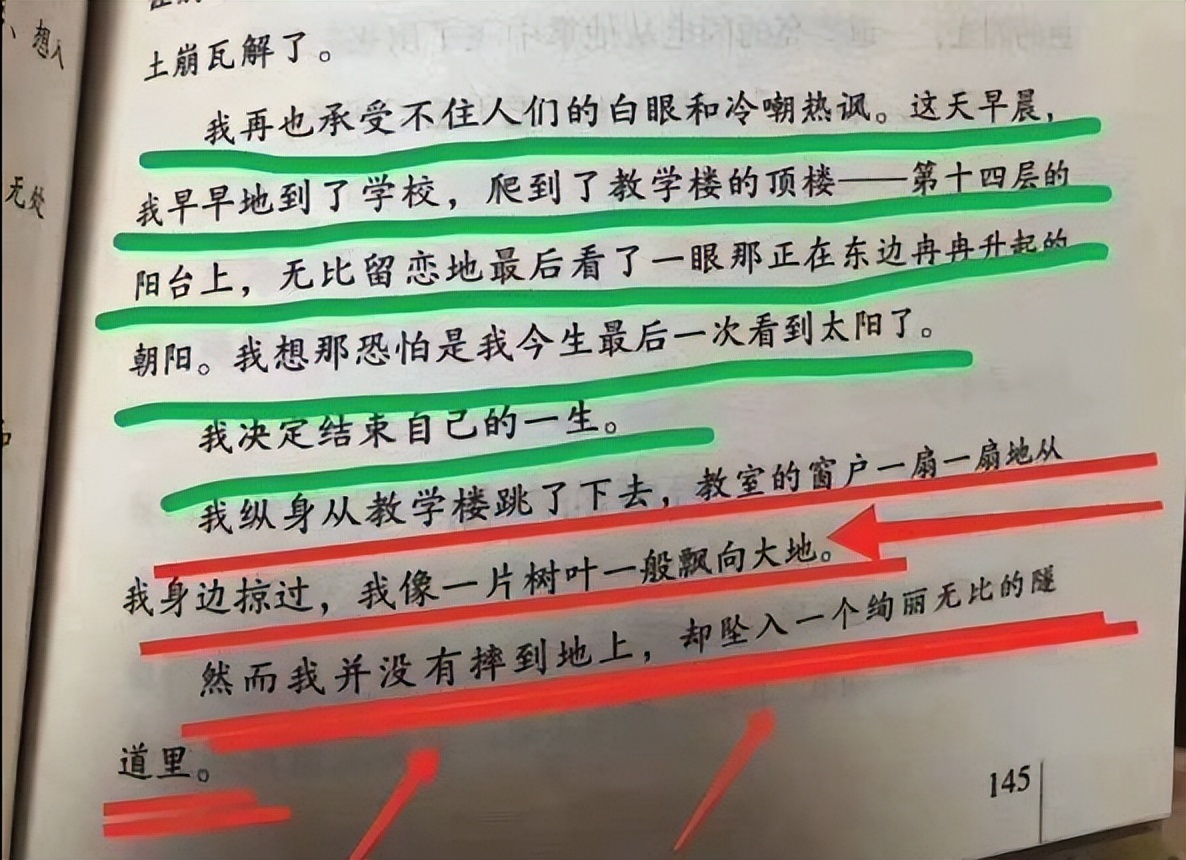 想入
无处
土崩瓦解了。
我再也承受不住人们的白眼和冷嘲热讽。这天早晨，
我早早地到了学校，爬到了教学楼的顶楼——第十四层的
阳台上，无比留恋地最后看了一眼那正在东边冉冉升起的
朝阳。我想那恐怕是我今生最后一次看到太阳了。
我决定结束自己的一生。
我纵身从教学楼跳了下去，教室的窗户一扇一扇地从
我身边掠过，我像一片树叶一般飘向大地。
然而我并没有摔到地上，却坠入一个绚丽无比的隧
道里。
145